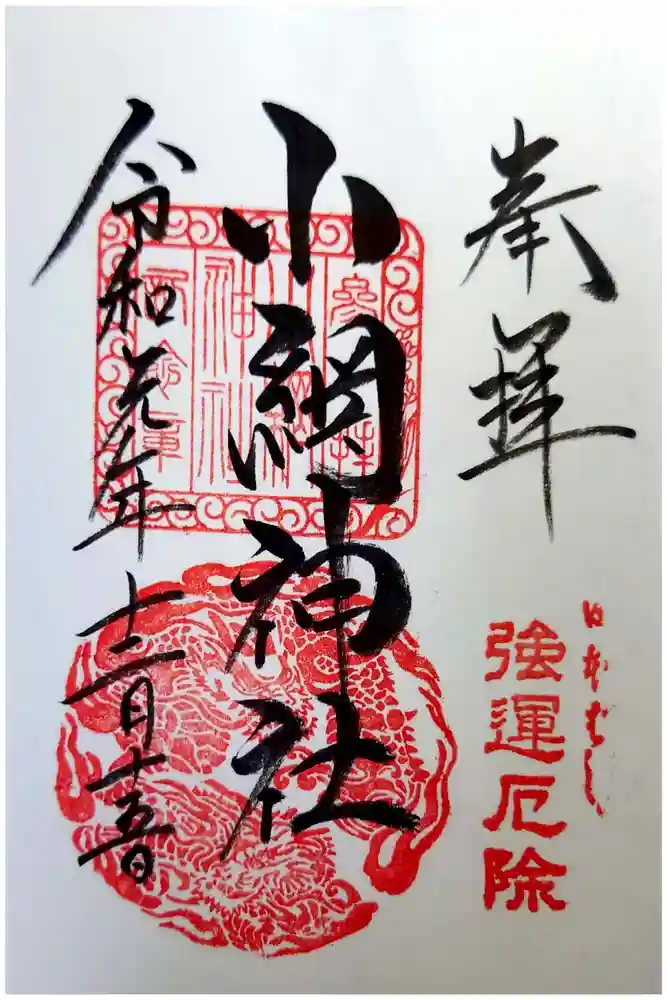 奉拝
日本ばし
強運厄除
小網神社
令和元年十二月十五日